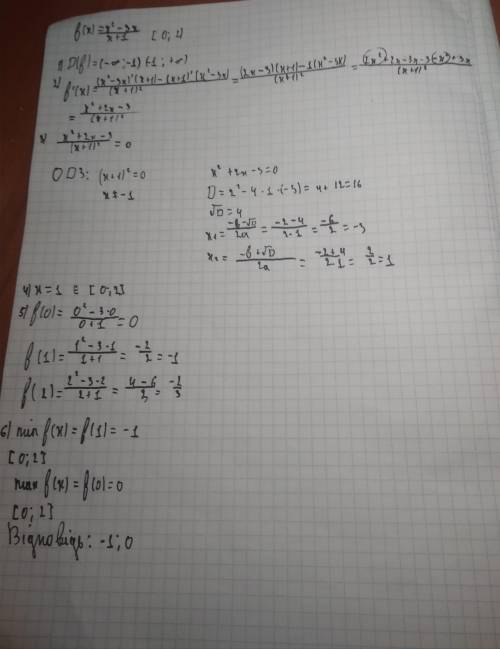 f(x) = x² - 3x / x + 1   [0; 2]
1) D(f) = (-∞; -1) (-1; +∞)
2) f'(x) = (x² - 3x)' (x+1) - (x+1)' (x² - 3x) / (x+1)² = (2x - 3)(x+1) - 1(x² - 3x) / (x+1)² = 2x² + 2x - 3x - 3 - x² + 3x / (x+1)² =
= x² + 2x - 3 / (x+1)²
3) x² + 2x - 3 / (x+1)² = 0
ОДЗ: (x+1)² = 0
x ≠ -1
x² + 2x - 3 = 0
D = 2² - 4 · 1 · (-3) = 4 + 12 = 16
√D = 4
x₁ = -b - √D / 2a = -2 - 4 / 2·1 = -6 / 2 = -3
x₂ = -b + √D / 2a = -2 + 4 / 2·1 = 2 / 2 = 1
4) x = 1 ∈ [0; 2]
5) f(0) = 0² - 3·0 / 0 + 1 = 0
f(1) = 1² - 3·1 / 1 + 1 = -2 / 2 = -1
f(2) = 2² - 3·2 / 2 + 1 = 4 - 6 / 3 = -2 / 3
6) min f(x) = f(1) = -1
[0; 2]
max f(x) = f(0) = 0
[0; 2]
Відповідь: -1; 0